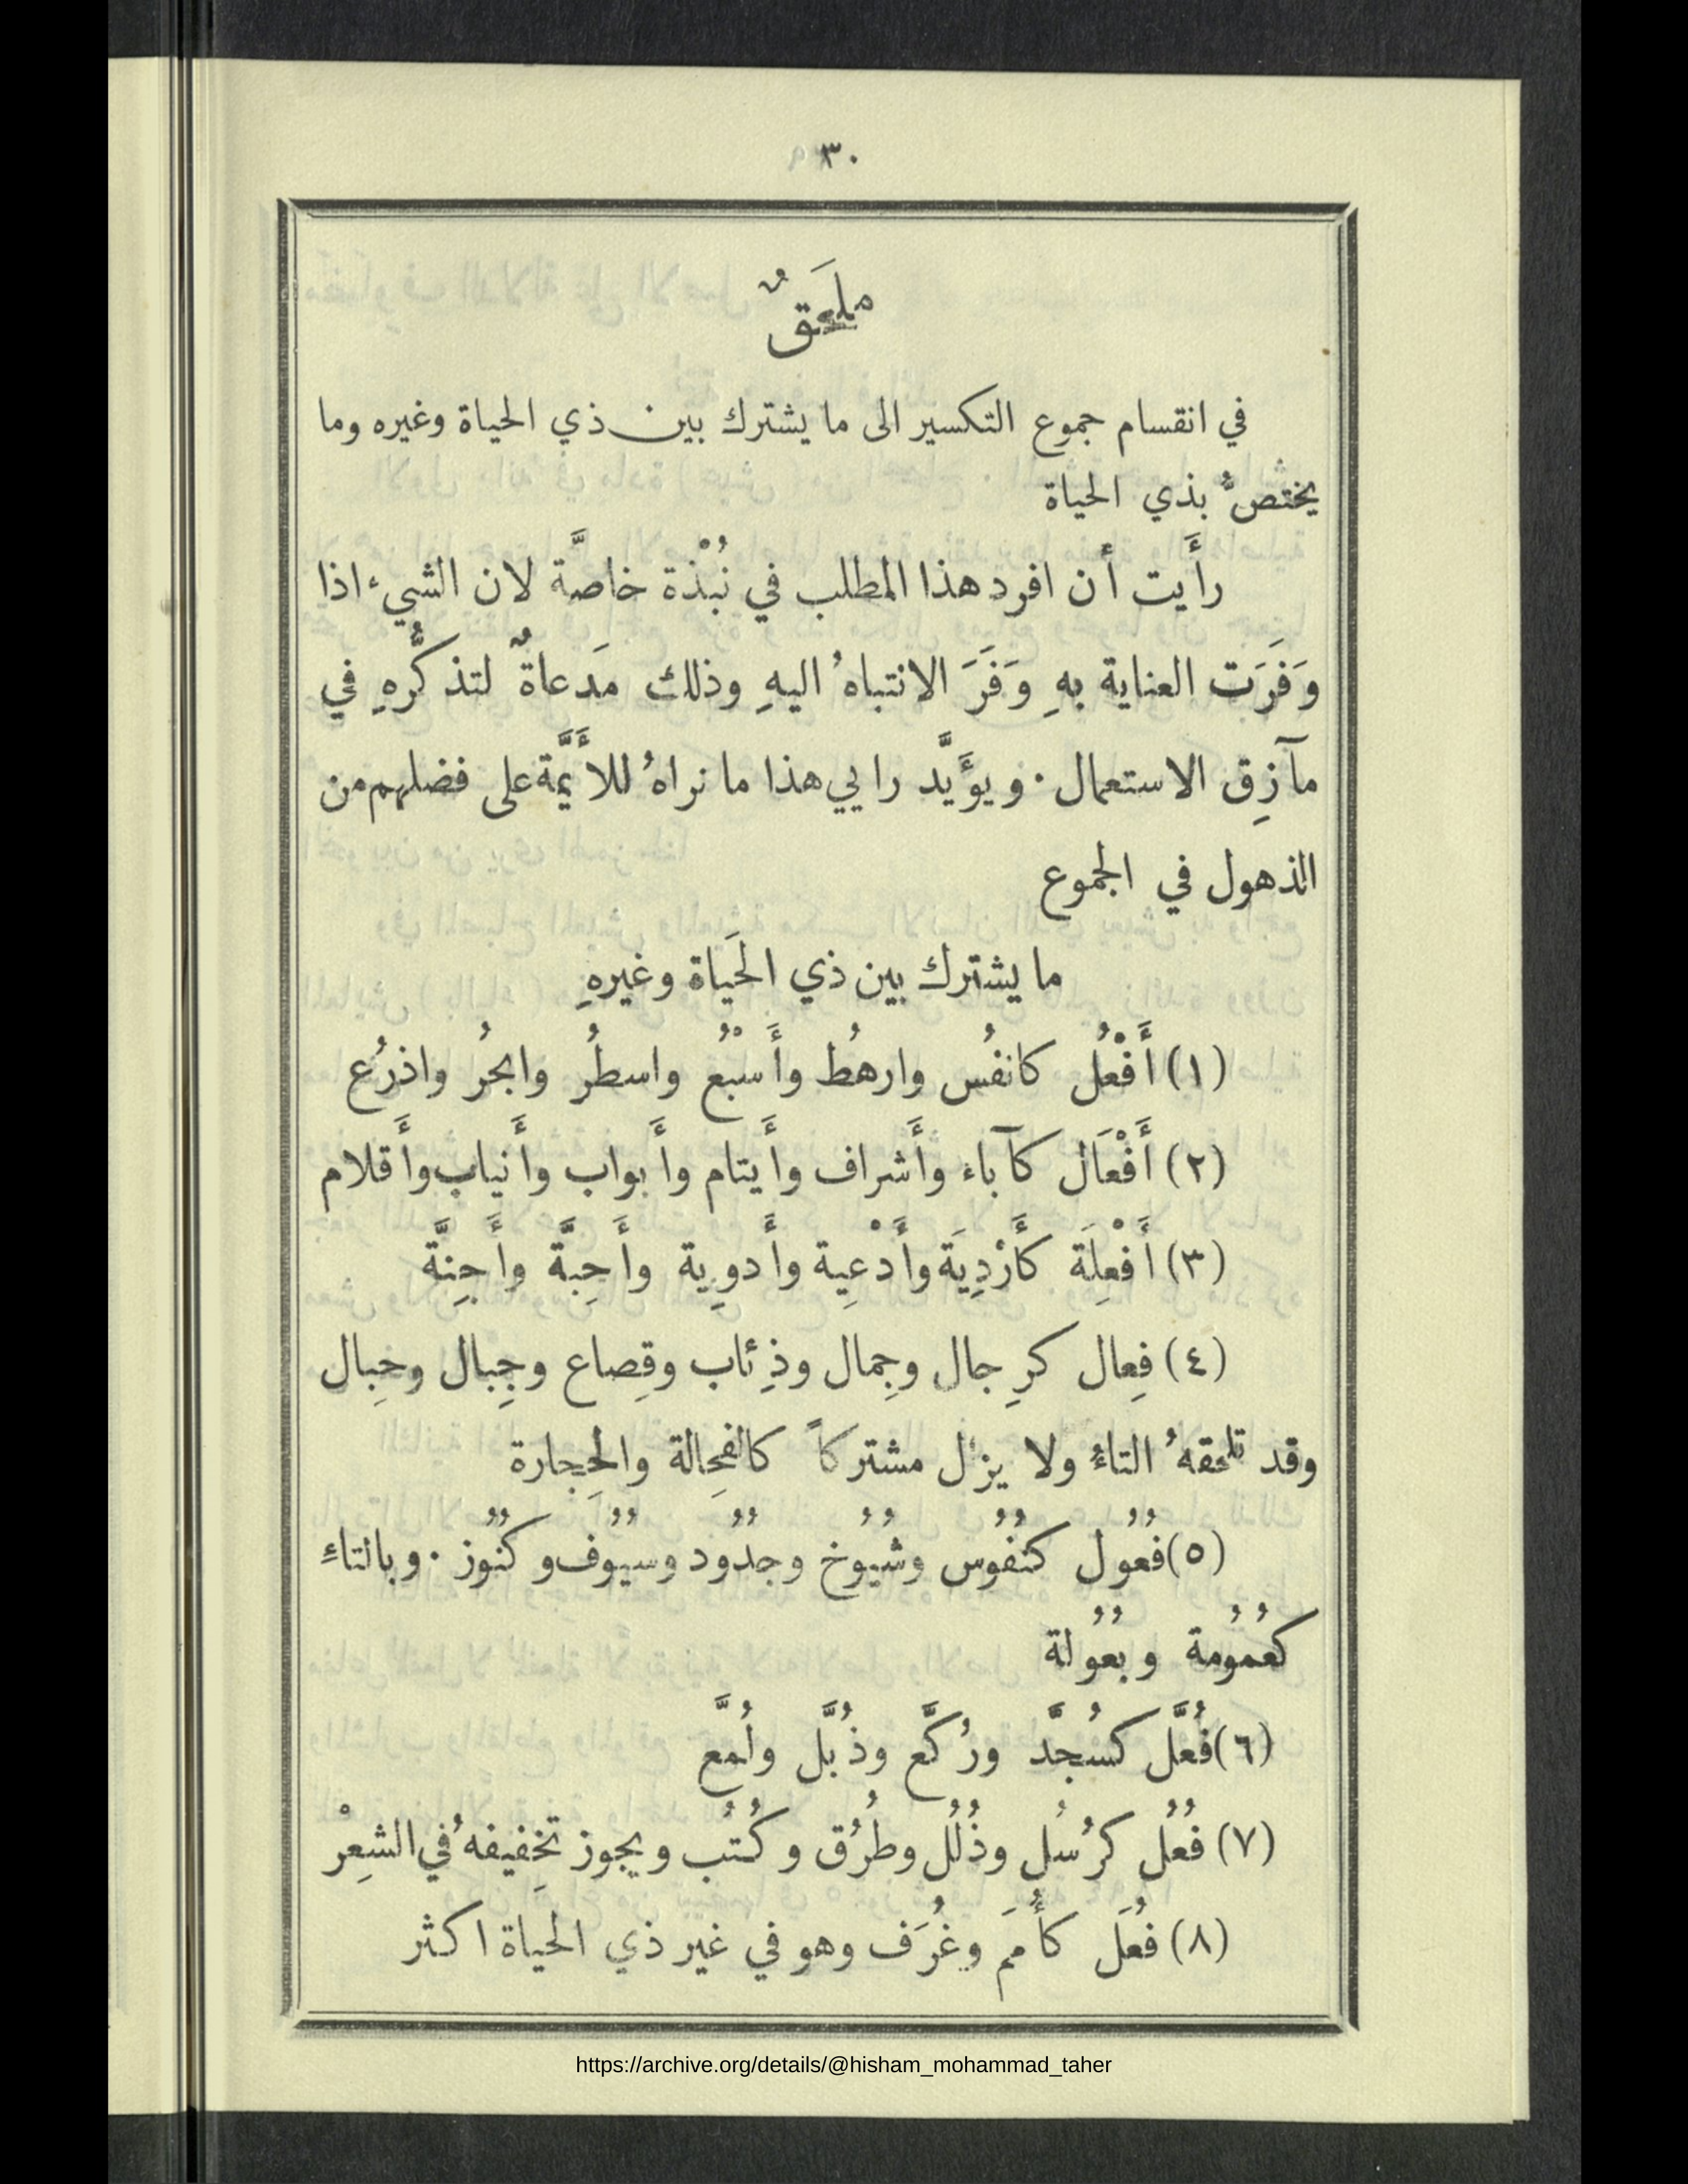 ٣٠
ملحَقٌ
في انقسام جموع التكسير الى ما يشترك بين ذي الحياة وغيره وما
يختصُّ بذي الحياة
رأَيت أَن افرد هذا المطلب في نُبْذة خاصَّة لان الشيء اذا
وَفَرَت العناية بهِ وَفَرَ الانتباهُ اليهِ وذلك مَدعاةٌ لتذكُّرهِ في
مآزِق الاستعمال . ويؤَيَّد رايي هذا ما نراهُ للأَيمَّة على فضلهم من
الذهول في الجموع
ما يشترك بين ذي الحَياة وغيرهِ
(١) أَفْعُل كانفُس وارهُط وأَسْبُع واسطُر وابحُر واذرُع
(٢) أَفْعَال كآباء وأَشراف وأَيتام وأَبواب وأَنياب وأَقلام
(٣) أَفْعِلَة كأَرْدِيَة وأَدْعِية وأَدوِية وأَحِبَّة وأَجِنَّة
(٤) فِعال كرِجال وجِمال وذِئاب وقِصاع وجِبال وحِبال
وقد تلحقهُ التاءُ ولا يزل مشتركاً كالفحِالة والحِجارة
(٥) فُعُول كنُفُوس وشُيُوخ وجدُود وسيُوف وكنُوز . وبالتاءِ
كعُمُومة وبُعُولة
(٦) فُعَّل كسُجَّد ورُكَّع وذُبَّل ولُمَّع
(٧) فُعُل كرُسُل وذُلُل وطُرُق وكُتُب ويجوز تخِفيفهُ في الشِعِرْ
(٨) فُعَل كأُمَم وغُرَف وهو في غير ذي الحياة اكثر
https://archive.org/details/@hisham_mohammad_taher